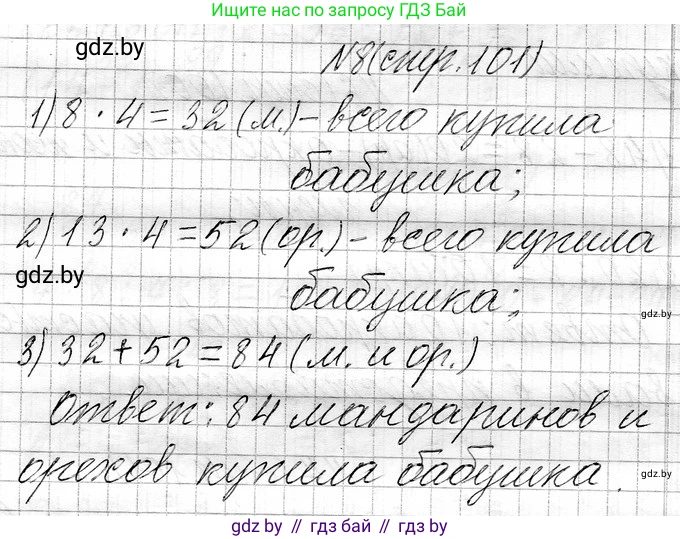 Ищите нас по запросу ГДЗ Бай
gdz.by
№8(стр.101)
1) 8 · 4 = 32 (м.) - всего купила
бабушка;
2) 13 · 4 = 52 (ор.) - всего купила
gdz.by
бабушка;
gdz.by
3) 32 + 52 = 84 (м. и ор.)
Ответ: 84 мандаринов и
орехов купила бабушка.
gdz.by
gdz.by // гдз бай // gdz.by